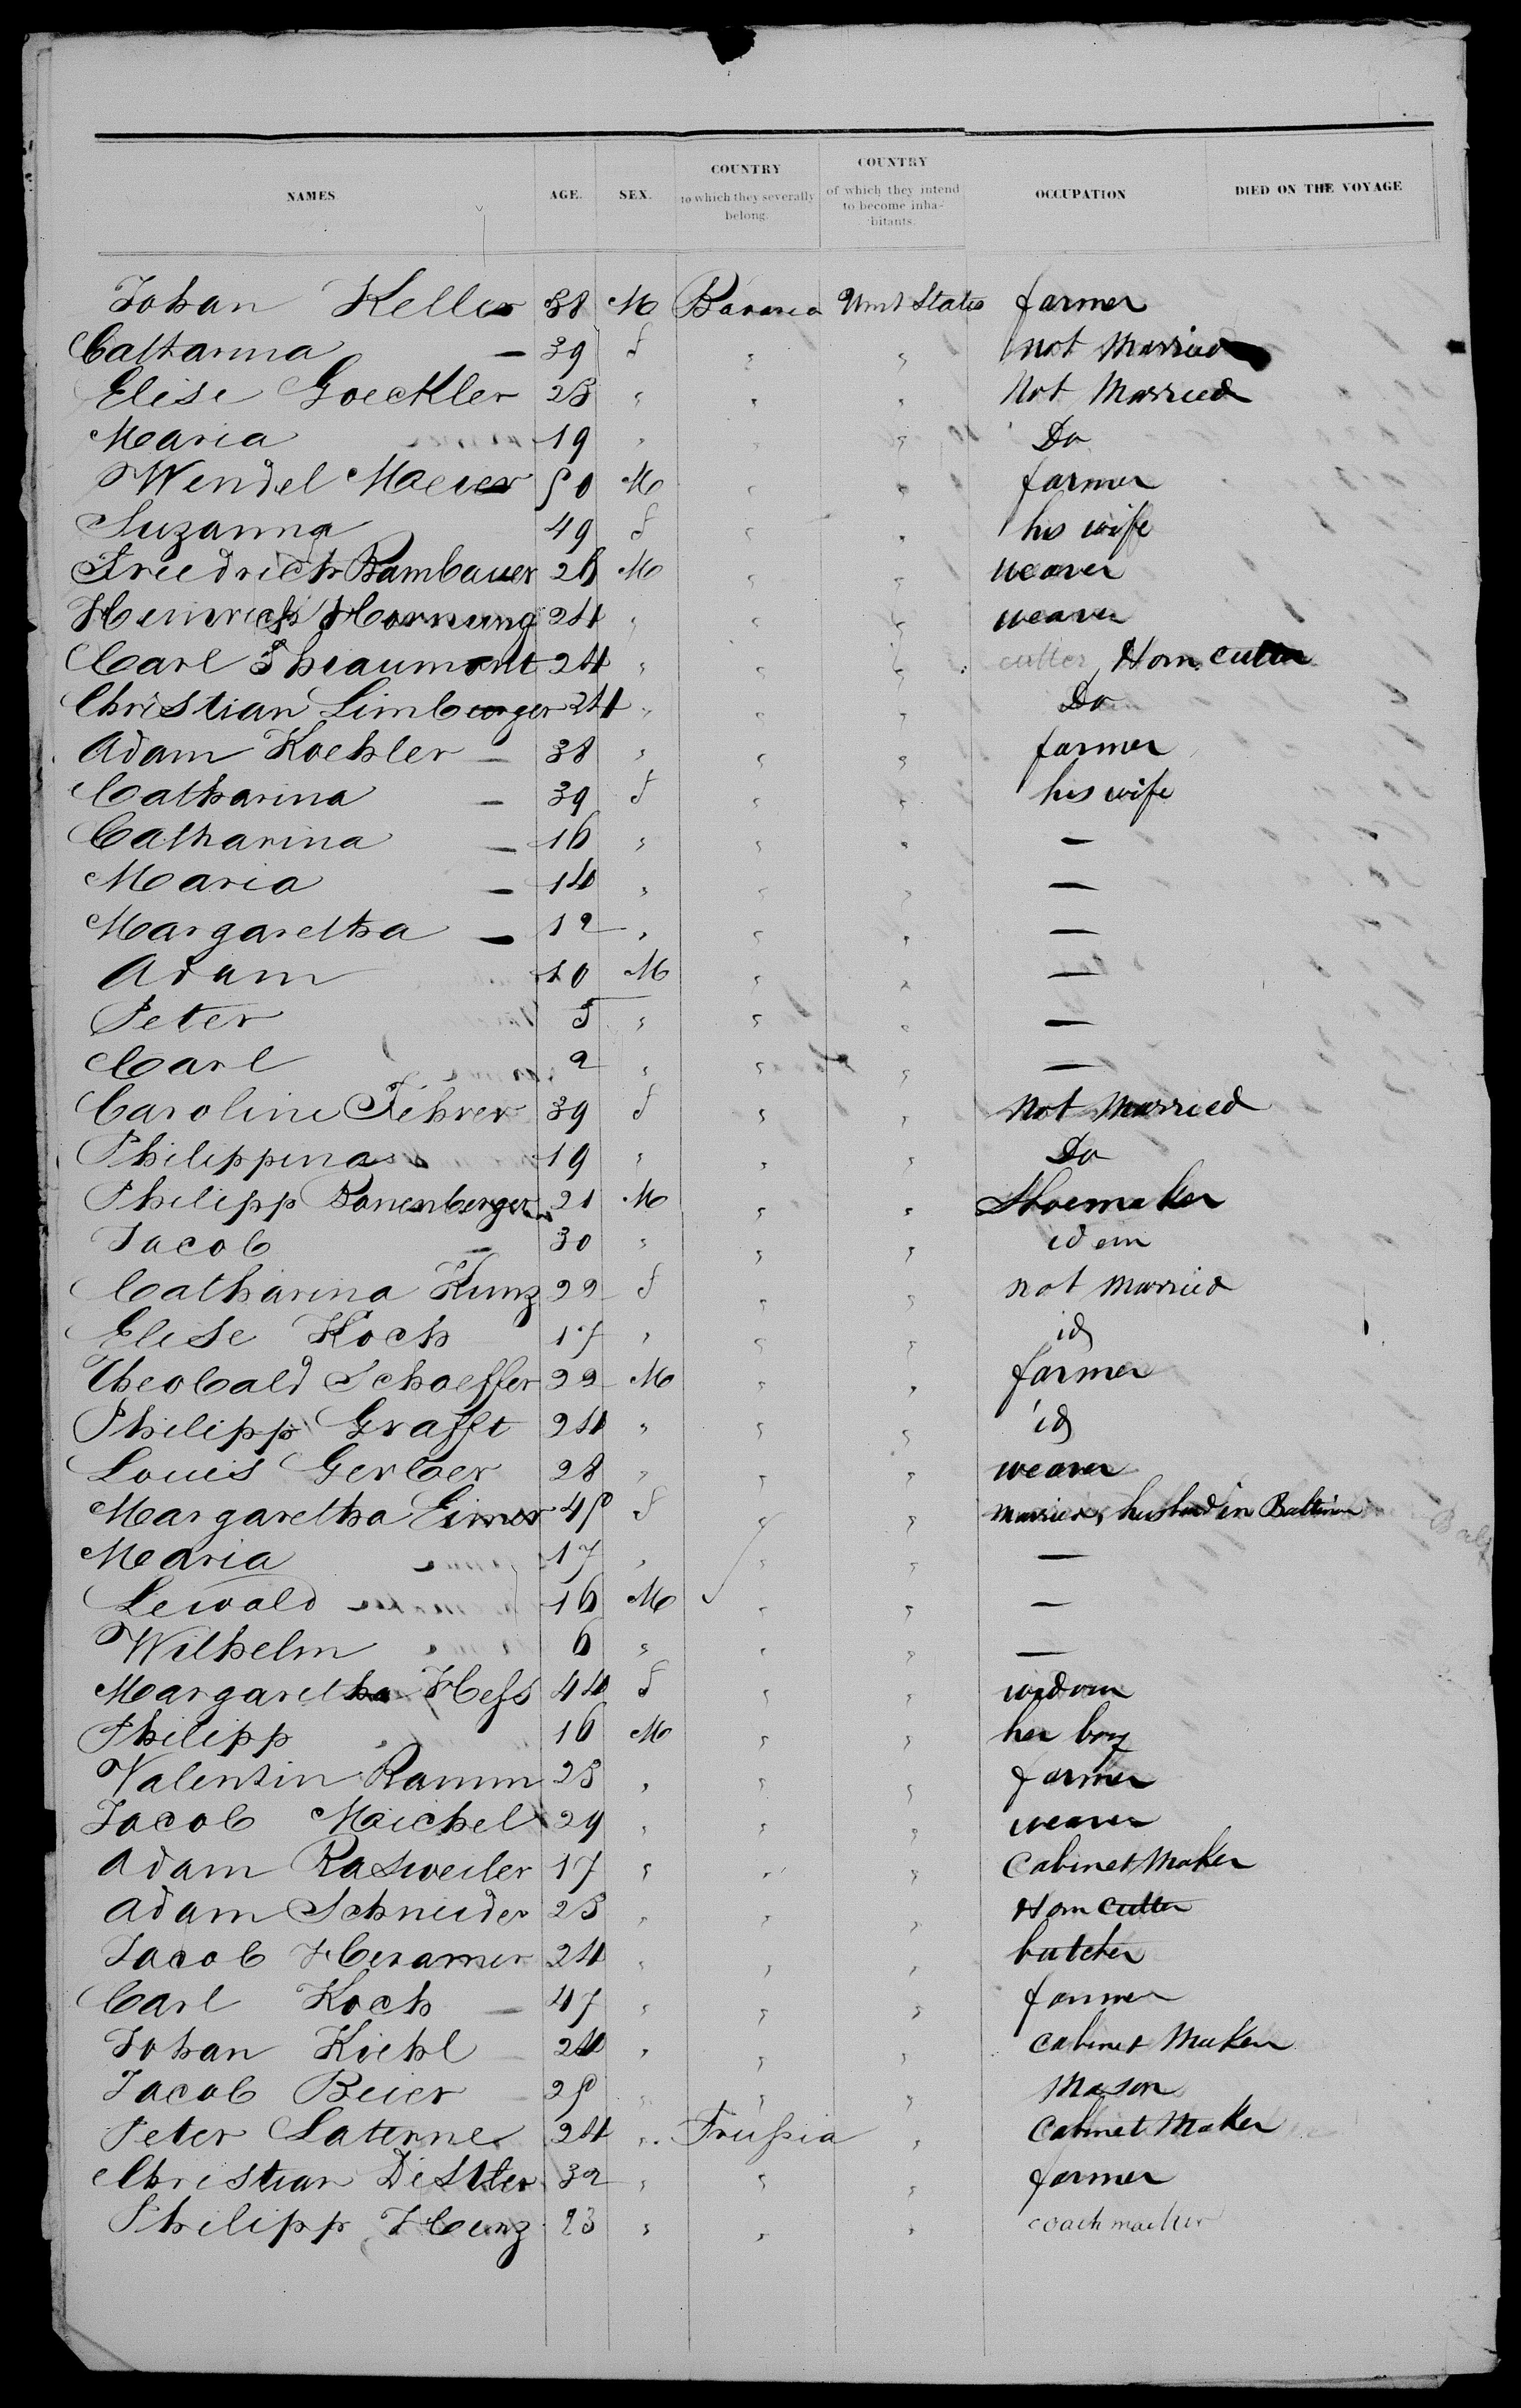 NAMES AGE. SEX. COUNTRY to which they severally belong. COUNTRY of which they intend to become inha-bitants. OCCUPATION DIED ON THE VOYAGE
Johan Keller 38 M Bavaria Unit States farmer
Catharina — 39 f " " not Married
Elise Goeckler 23 " " " Not Married
Maria 19 " " " Do
Wendel Maeier 50 M " " farmer
Suzanna 49 f " " his wife
Friedrich Bambauer 26 M " " weaver
Heinrich Hornung 24 " " " weaver
Carl Theaumont 24 " " " cutter Horn cutter
Christian Limburger 24 " " " Do
Adam Koehler — 38 " " " farmer
Catharina — 39 f " " his wife
Catharina — 16 " " " —
Maria — 14 " " " —
Margaretha — 12 " " " —
Adam 10 M " " —
Peter 5 " " " —
Carl 2 " " " —
Caroline Fehrer 39 f " " Not Married
Philippina 19 " " " Do
Philipp Bonenberger 21 M " " Shoemaker
Jacob — 30 " " " idem
Catharina Kunz 22 f " " not Married
Elise Koch 17 " " " id
Theobald Schoeffer 22 M " " farmer
Philipp Grafft 24 " " " id
Louis Gerber 28 " " " weaver
Margaretha Eimer 45 f " " married, husband in Baltimore
Maria 17 " " " —
Lewald 16 M " " —
Wilhelm 6 " " " —
Margaretha Hess 44 f " " widow
Philipp 16 M " " her boy
Valentin Ramm 23 " " " farmer
Jacob Maichel 29 " " " weaver
Adam Rasweiler 17 " " " Cabinet Maker
Adam Schneider 23 " " " Horn cutter
Jacob 24 " " " butcher
Carl Koch — 47 " " " farmer
Johan Kiehl — 24 " " " cabinet Maker
Jacob Beier — 25 " " " Mason
Peter Laterne 24 " Prussia " Cabinet Maker
Christian Distler 32 " " " farmer
Philipp Henz 23 " " " coach macker